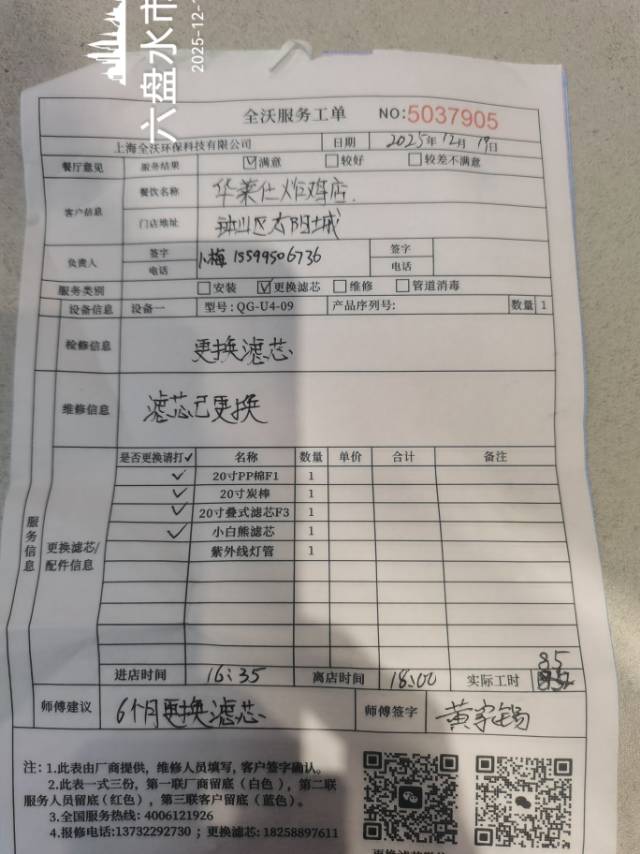 六盘水市
2025-12-1
全沃服务工单 NO:5037905
上海全沃环保科技有限公司 日期 2025年12月19日
餐厅意见 服务结果 ☑满意 □较好 □较差不满意
客户信息 餐饮名称 华莱仕炸鸡店.
门店地址 钟山区太阳城
负责人 签字 小梅 15599506736 签字
电话 电话
服务类别 □安装 ☑更换滤芯 □维修 □管道消毒
设备信息 设备一 型号:QG-U4-09 产品序列号: 数量 1
检修信息 更换滤芯
维修信息 滤芯已更换
服务信息
更换滤芯/配件信息
是否更换请打✓ 名称 数量 单价 合计 备注
✓ 20寸PP棉F1 1
✓ 20寸炭棒 1
✓ 20寸叠式滤芯F3 1
✓ 小白熊滤芯 1
紫外线灯管 1
进店时间 16:35 离店时间 18:00 实际工时 85
师傅建议 6个月更换滤芯 师傅签字 黄家锡
注:1.此表由厂商提供,维修人员填写,客户签字确认。
2.此表一式三份,第一联厂商留底(白色),第二联
服务人员留底(红色),第三联客户留底(蓝色)。
3.全国服务热线:4006121926
4.报修电话:13732292730;更换滤芯:18258897611